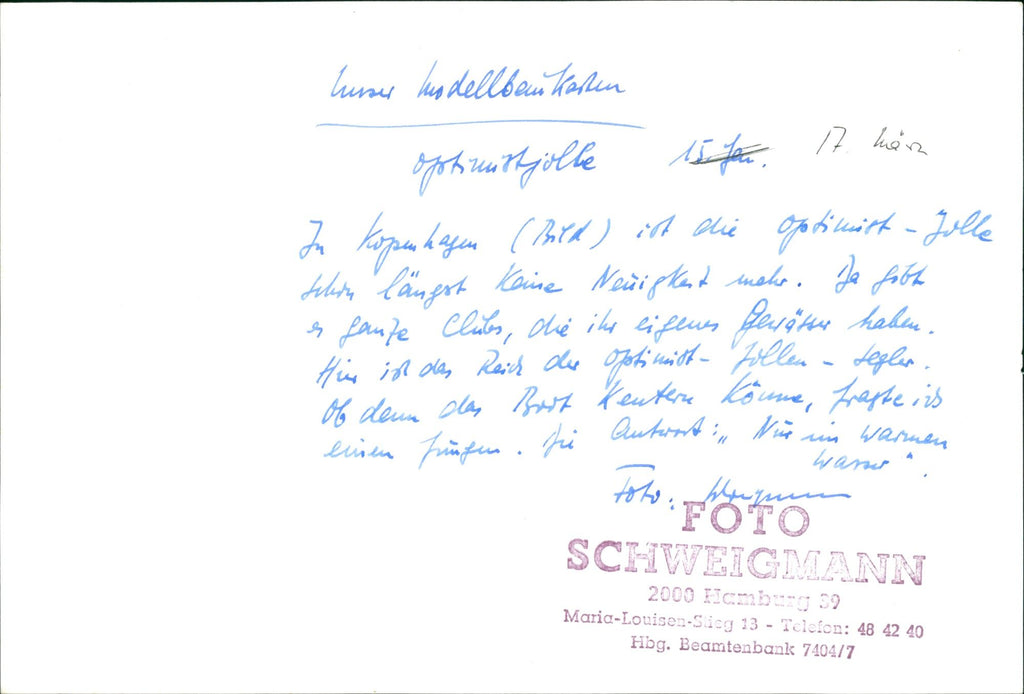 Unser Modellbaukasten
Optimistjolle 15. Jan. 17. März
In Kopenhagen (Bild) ist die Optimist-Jolle
schon längst keine Neuigkeit mehr. Da gibt
es ganze Clubs, die ihr eigenes Gewässer haben.
Hier ist das Reich der Optimist-Jollen-Segler.
Ob denn das Boot kentern könne, fragte ich
einen Jungen. Die Antwort: „Nur im warmen
Wasser“.
Foto: Schweigmann
FOTO
SCHWEIGMANN
2000 Hamburg 39
Maria-Louisen-Stieg 13 - Telefon: 48 42 40
Hbg. Beamtenbank 7404/7